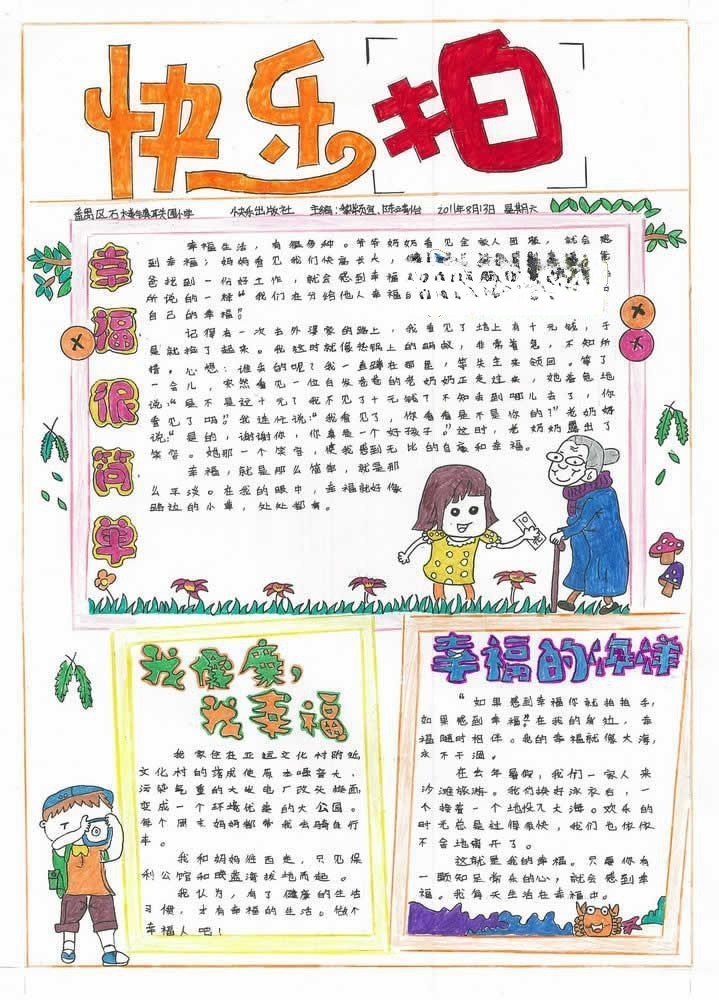 快乐拍
番禺区石楼镇联围小学 快乐出版社 主编: 2011年8月13日 星期六
幸福很简单
幸福生活,有很多种。爷爷奶奶看见全家人团聚,就会感
到幸福;妈妈看见我们快高长大,
爸找到一份好工作,就会感到幸福
所说的一样“我们在分给他人幸福
自己的幸福。”
记得有一次去外婆家的路上,我看见了地上有十元钱,于
是就捡了起来。我这时就像热锅上的蚂蚁,非常着急,不知所
措。心想:谁丢的呢?我一直蹲在那里,等失主来领回。等了
一会儿,突然看见一位白发苍苍的老奶奶正走过来,她着急地
说:“是不是这十元?我不见了十元钱?不知丢到哪儿去了,你
看见了吗?”我连忙说:“我看见了,你看看是不是你的?”老奶奶
说:“是的,谢谢你,你真是一个好孩子。”这时,老奶奶露出了
笑容。她那一个笑容,使我感到无比的自豪和幸福。
幸福,就是那么简单,就是那
么平淡。在我的眼中,幸福就好像
路边的小草,处处都有。
我健康,
我幸福
我家住在亚运文化村附近,
文化村的落成使原本噪音大,
污染严重的大发电厂改头换面,
变成一个环境优美的大公园。
每个周末妈妈都带我去骑自行
车。
我和妈妈往西走,只见保
利公馆和映蓝海拔地而起。
我认为,有了健康的生活
习惯,才有幸福的生活。做个
幸福人吧!
幸福的海洋
“如果感到幸福你就拍拍手,
如果感到幸福”在我的身边,幸
福随时相伴。我的幸福就像大海,
永不干涸。
在去年暑假,我们一家人来
沙滩旅游。我们换好泳衣后,一
个接着一个地投入大海。欢乐的
时光总是过得很快,我们也依依
不舍地离开了。
这就是我的幸福。只要你有
一颗知足常乐的心,就会感到幸
福。我每天生活在幸福中。